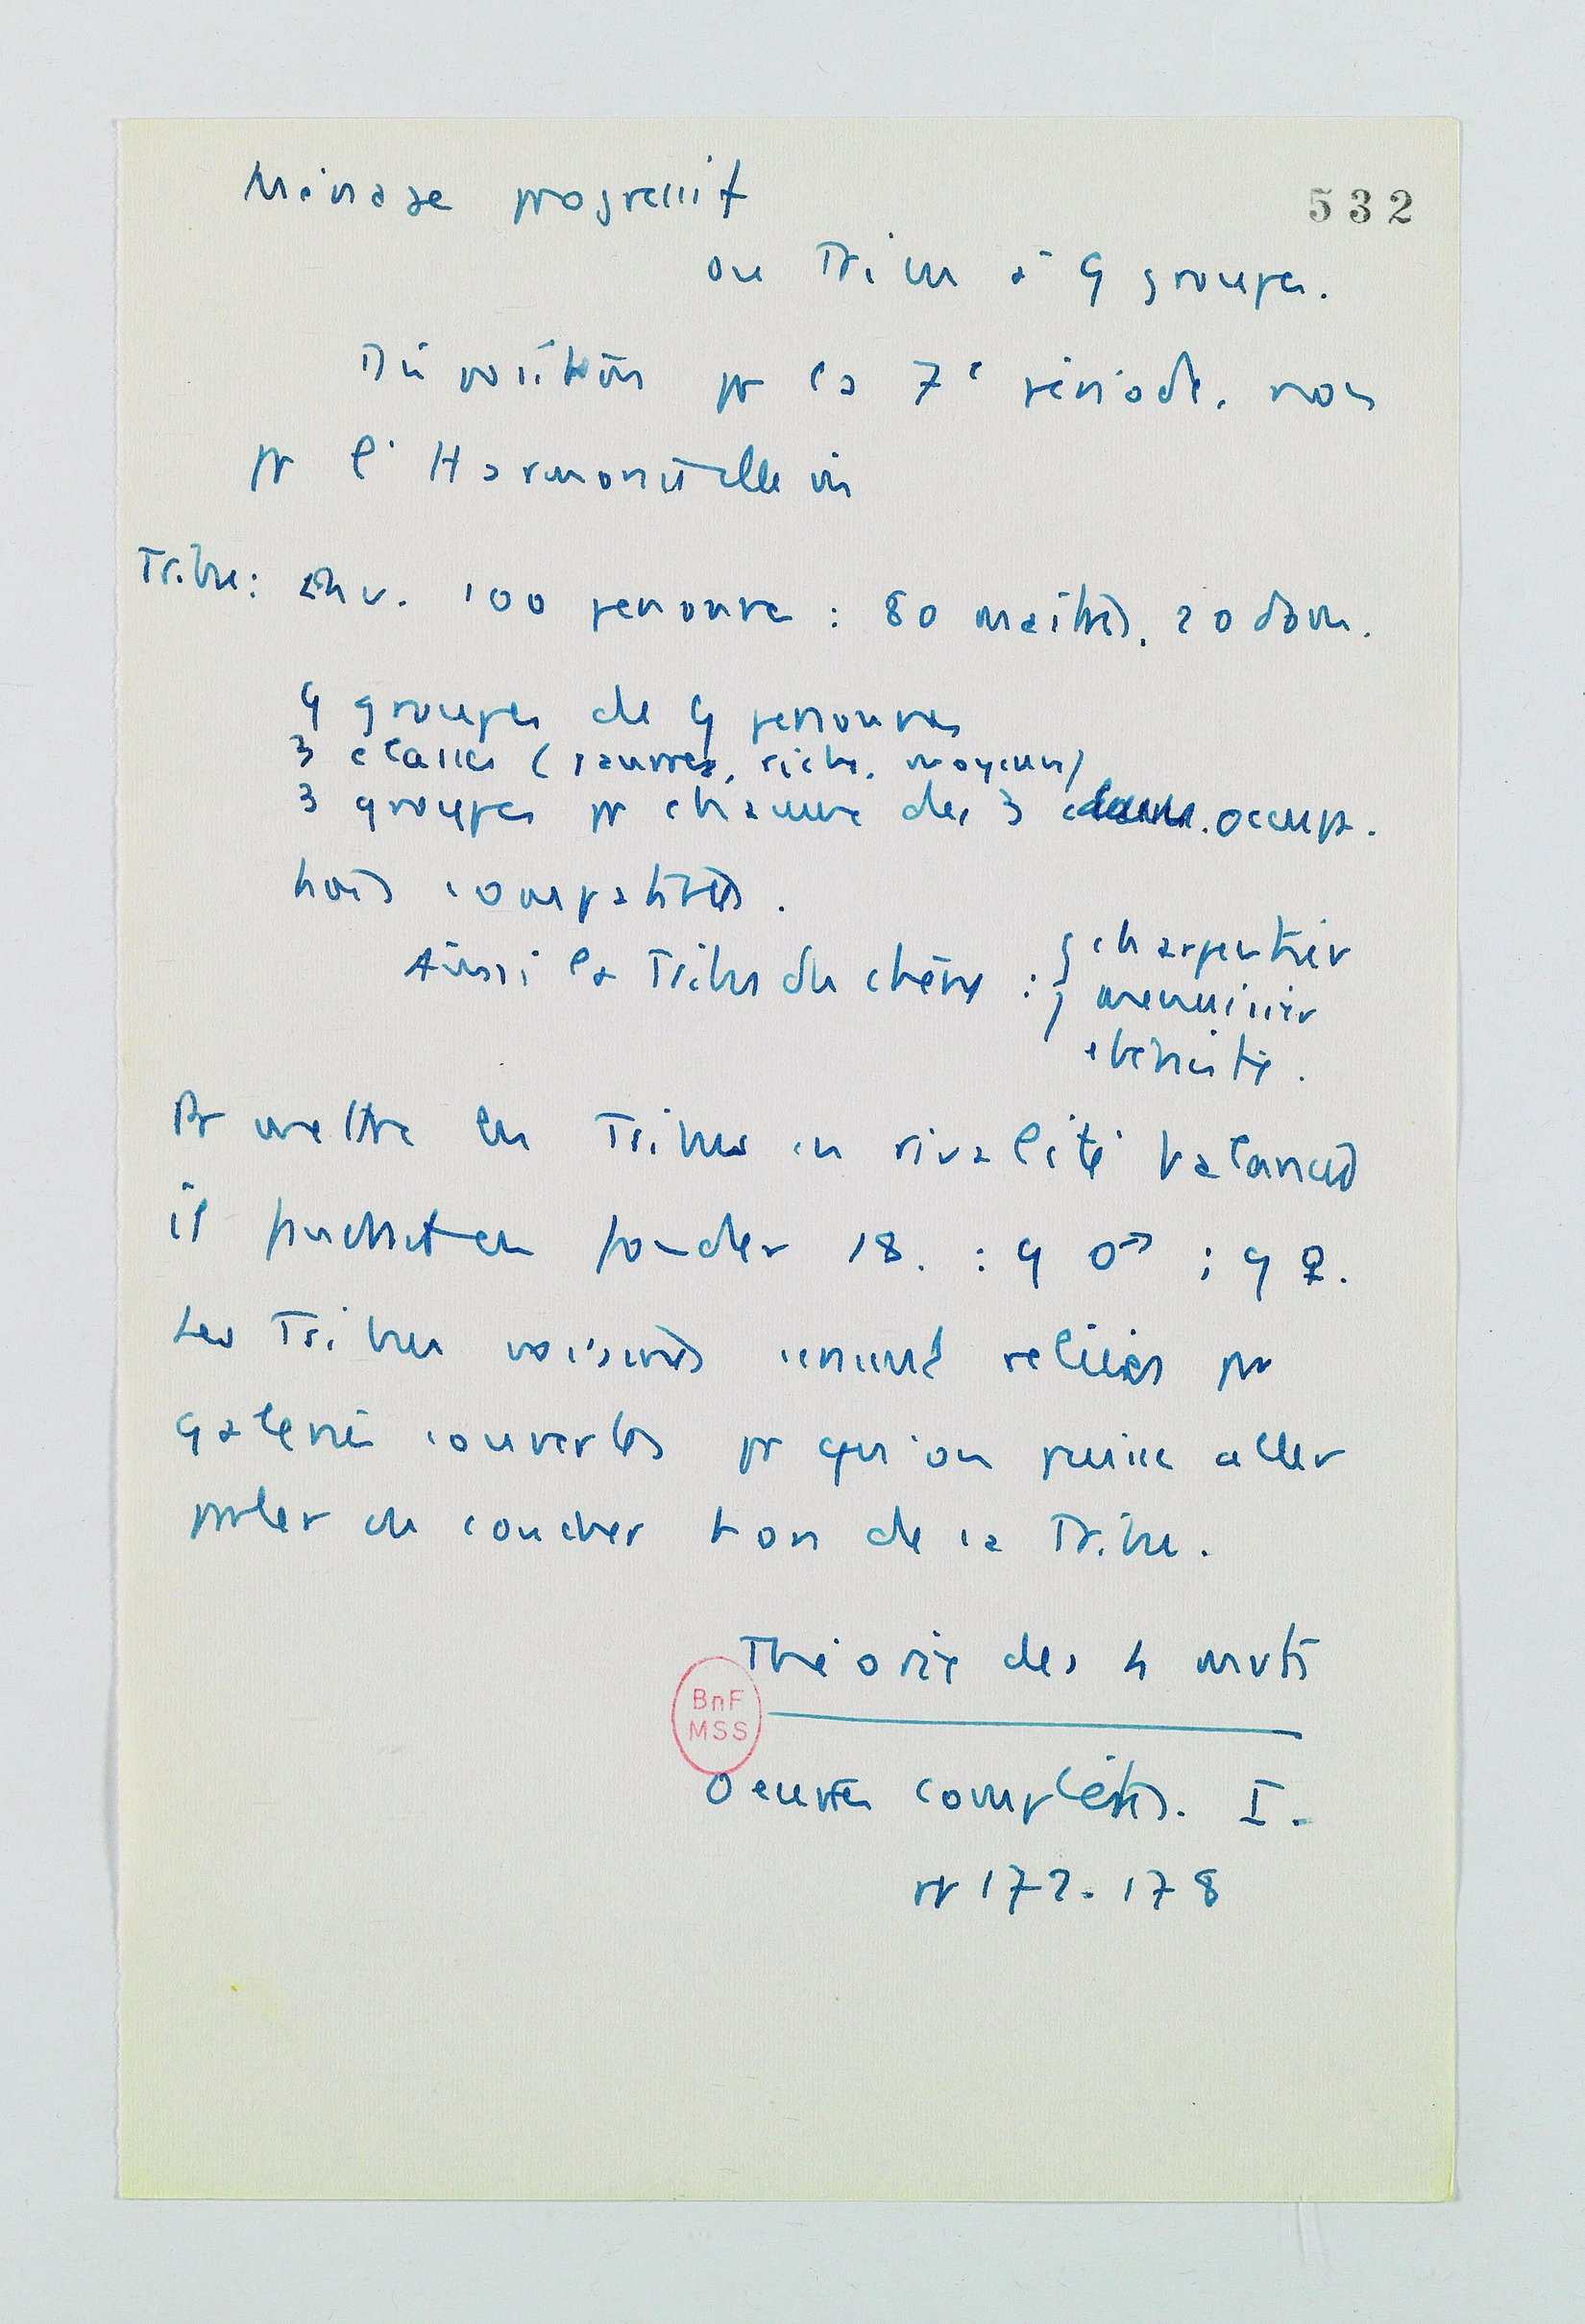 Ménage progressif
532
ou Tribu à 9 groupes.
Disposition pr la 7e période, non
pr l'Harmonie
Tribu : env. 100 personnes : 80 maîtres, 20 dom.
9 groupes de 9 personnes
3 classes (pauvres, riches, moyens)
3 groupes pr chacune des 3 classes. occup.
trois compatibles.
Ainsi la Tribu du chêne : { charpentier
menuisier
ébéniste.
Pr mettre les Tribus en rivalité balancée
il faudrait en fonder 18. : 9 ♂ ; 9 ♀.
Les Tribus voisines seront reliées par
galeries couvertes pr qu'on puisse aller
parler ou coucher hors de la Tribu.
Théorie des 4 mvts
BnF
MSS
Oeuvres complètes. I.
pp 172-178